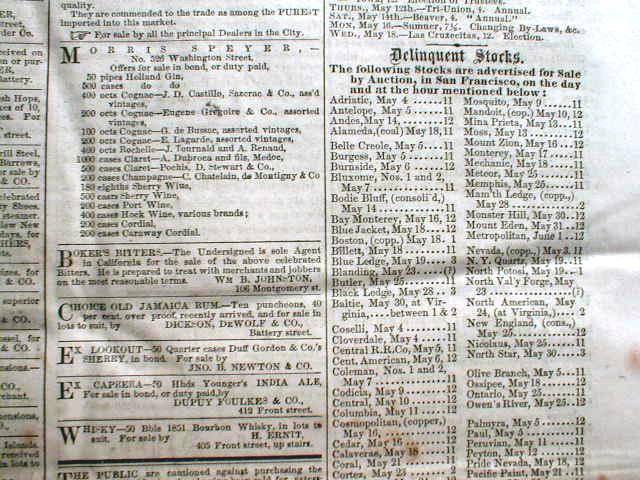 quality.
They are commended to the trade as among the PUREST
imported into this market.
For sale by all the principal Dealers in the City.
MORRIS SPEYER,
No. 526 Washington Street,
Offers for sale in bond, or duty paid,
50 pipes Holland Gin,
500 cases do do
400 octs Cognac—J. D. Castillo, Sazerac & Co., ass'd
vintages,
200 octs Cognac—Eugene Gregoire & Co., assorted
vintages,
100 octs Cognac—G. de Bussac, assorted vintages,
200 octs Cognac—E. Lagarde, assorted vintages,
400 octs Rochelle—J. Tournald and A. Renaud,
1000 cases Claret—A. Dubroca and fils, Medoc,
500 cases Claret—Poehls, D. Stewart & Co.,
200 cases Champagne—C. Chatelain, de Montigny & Co
180 eighths Sherry Wine,
500 cases Sherry Wine,
200 cases Port Wine,
400 cases Hock Wine, various brands;
200 cases Cordial,
200 cases Caraway Cordial.
BOKER'S BITTERS.—The Undersigned is sole Agent
in California for the sale of the above celebrated
Bitters. He is prepared to treat with merchants and jobbers
on the most reasonable terms. WM B. JOHNSTON,
106 Montgomery st.
CHOICE OLD JAMAICA RUM.—Ten puncheons, 40
per cent. over proof, recently arrived, and for sale in
lots to suit, by DICKSON, DEWOLF & CO.,
Battery street.
EX LOOKOUT—50 Quarter cases Duff Gordon & Co.'s
SHERRY, in bond. For sale by
JNO. B. NEWTON & CO.
EX CAPRERA—50 Hhds Younger's INDIA ALE,
For sale in bond, or duty paid, by
DUPUY FOULKES & CO.,
412 Front street.
WHISKY—50 Bbls 1851 Bourbon Whisky, in lots to
suit. For sale by H. ERNIT,
405 Front street, up stairs.
THE PUBLIC are cautioned against purchasing the
THURS, May 12th.—Tri-Union, 4. Annual.
SAT., May 14th.—Beaver, 4. "Annual."
MON, May 16.—Sumner, 7½. Changing By-Laws, &c.
WED., May 18.—Las Crucezitas, 12. Election.
Delinquent Stocks.
The following Stocks are advertised for Sale
by Auction, in San Francisco, on the day
and at the hour mentioned below:
Adriatic, May 4......11
Antelope, May 5......11
Andes, May 14........11
Alameda, (coal) May 18, 11
Belle Creole, May 5....11
Burgess, May 5........11
Burnside, May 6......12
Bluxome, Nos. 1 and 2,
May 7..............11
Bodie Bluff, (consoli'd,)
May 14..............11
Bay Monterey, May 16, 12
Blue Jacket, May 18....11
Boston, (copp.) May 18. 1
Billett, May 18........11
Blue Ledge, May 19.... 3
Blanding, May 23......(?)
Butler, May 25........11
Black Ledge, May 28.. 3
Baltic, May 30, at Virginia,
......between 1 & 2
Coselli, May 4........11
Cloverdale, May 4.....11
Central R.R. Co, May 5, 11
Cent. American, May 6, 12
Coleman, Nos. 1 and 2,
May 7..............11
Codicia, May 9........11
Central, May 10......12
Columbia, May 11......11
Cosmopolitan, (copper,)
May 16,............12
Cedar, May 16........12
Calaveras, May 18.....11
Coral, May 21........11
Cortez, May 23........11
Mosquito, May 9......11
Mandoit, (cop.) May 10, 12
Mina Prieta, May 13....11
Moss, May 13..........12
Mount Zion, May 16...12
Monterey, May 17......11
Mechanic, May 18......11
Meteor, May 25........11
Memphis, May 25......11
Mam'th Ledge, (copp.,)
May 28.............. 2
Monster Hill, May 30..12
Mount Eden, May 31..12
Metropolitan, June 1..12
Nevada, (copp.,) May 3, 11
N. Y. Quartz, May 16..11
North Potosi, May 19.. 1
North Val'y Forge, May
23................(?)
North American, May
24, (at Virginia,).... 2
New England, (cons.,)
May 25..............12
Nicolaus, May 25......11
North Star, May 30.... 3
Olive Branch, May 5...11
Ossipee, May 18........12
Ontario, May 25........11
Owen's River, May 25..12
Palmyra, May 5........11
Paul, May 5............11
Peruvian, May 11......11
Peyton, May 12........11
Pride Nevada, May 18, 12
Pacific Paint, May 21